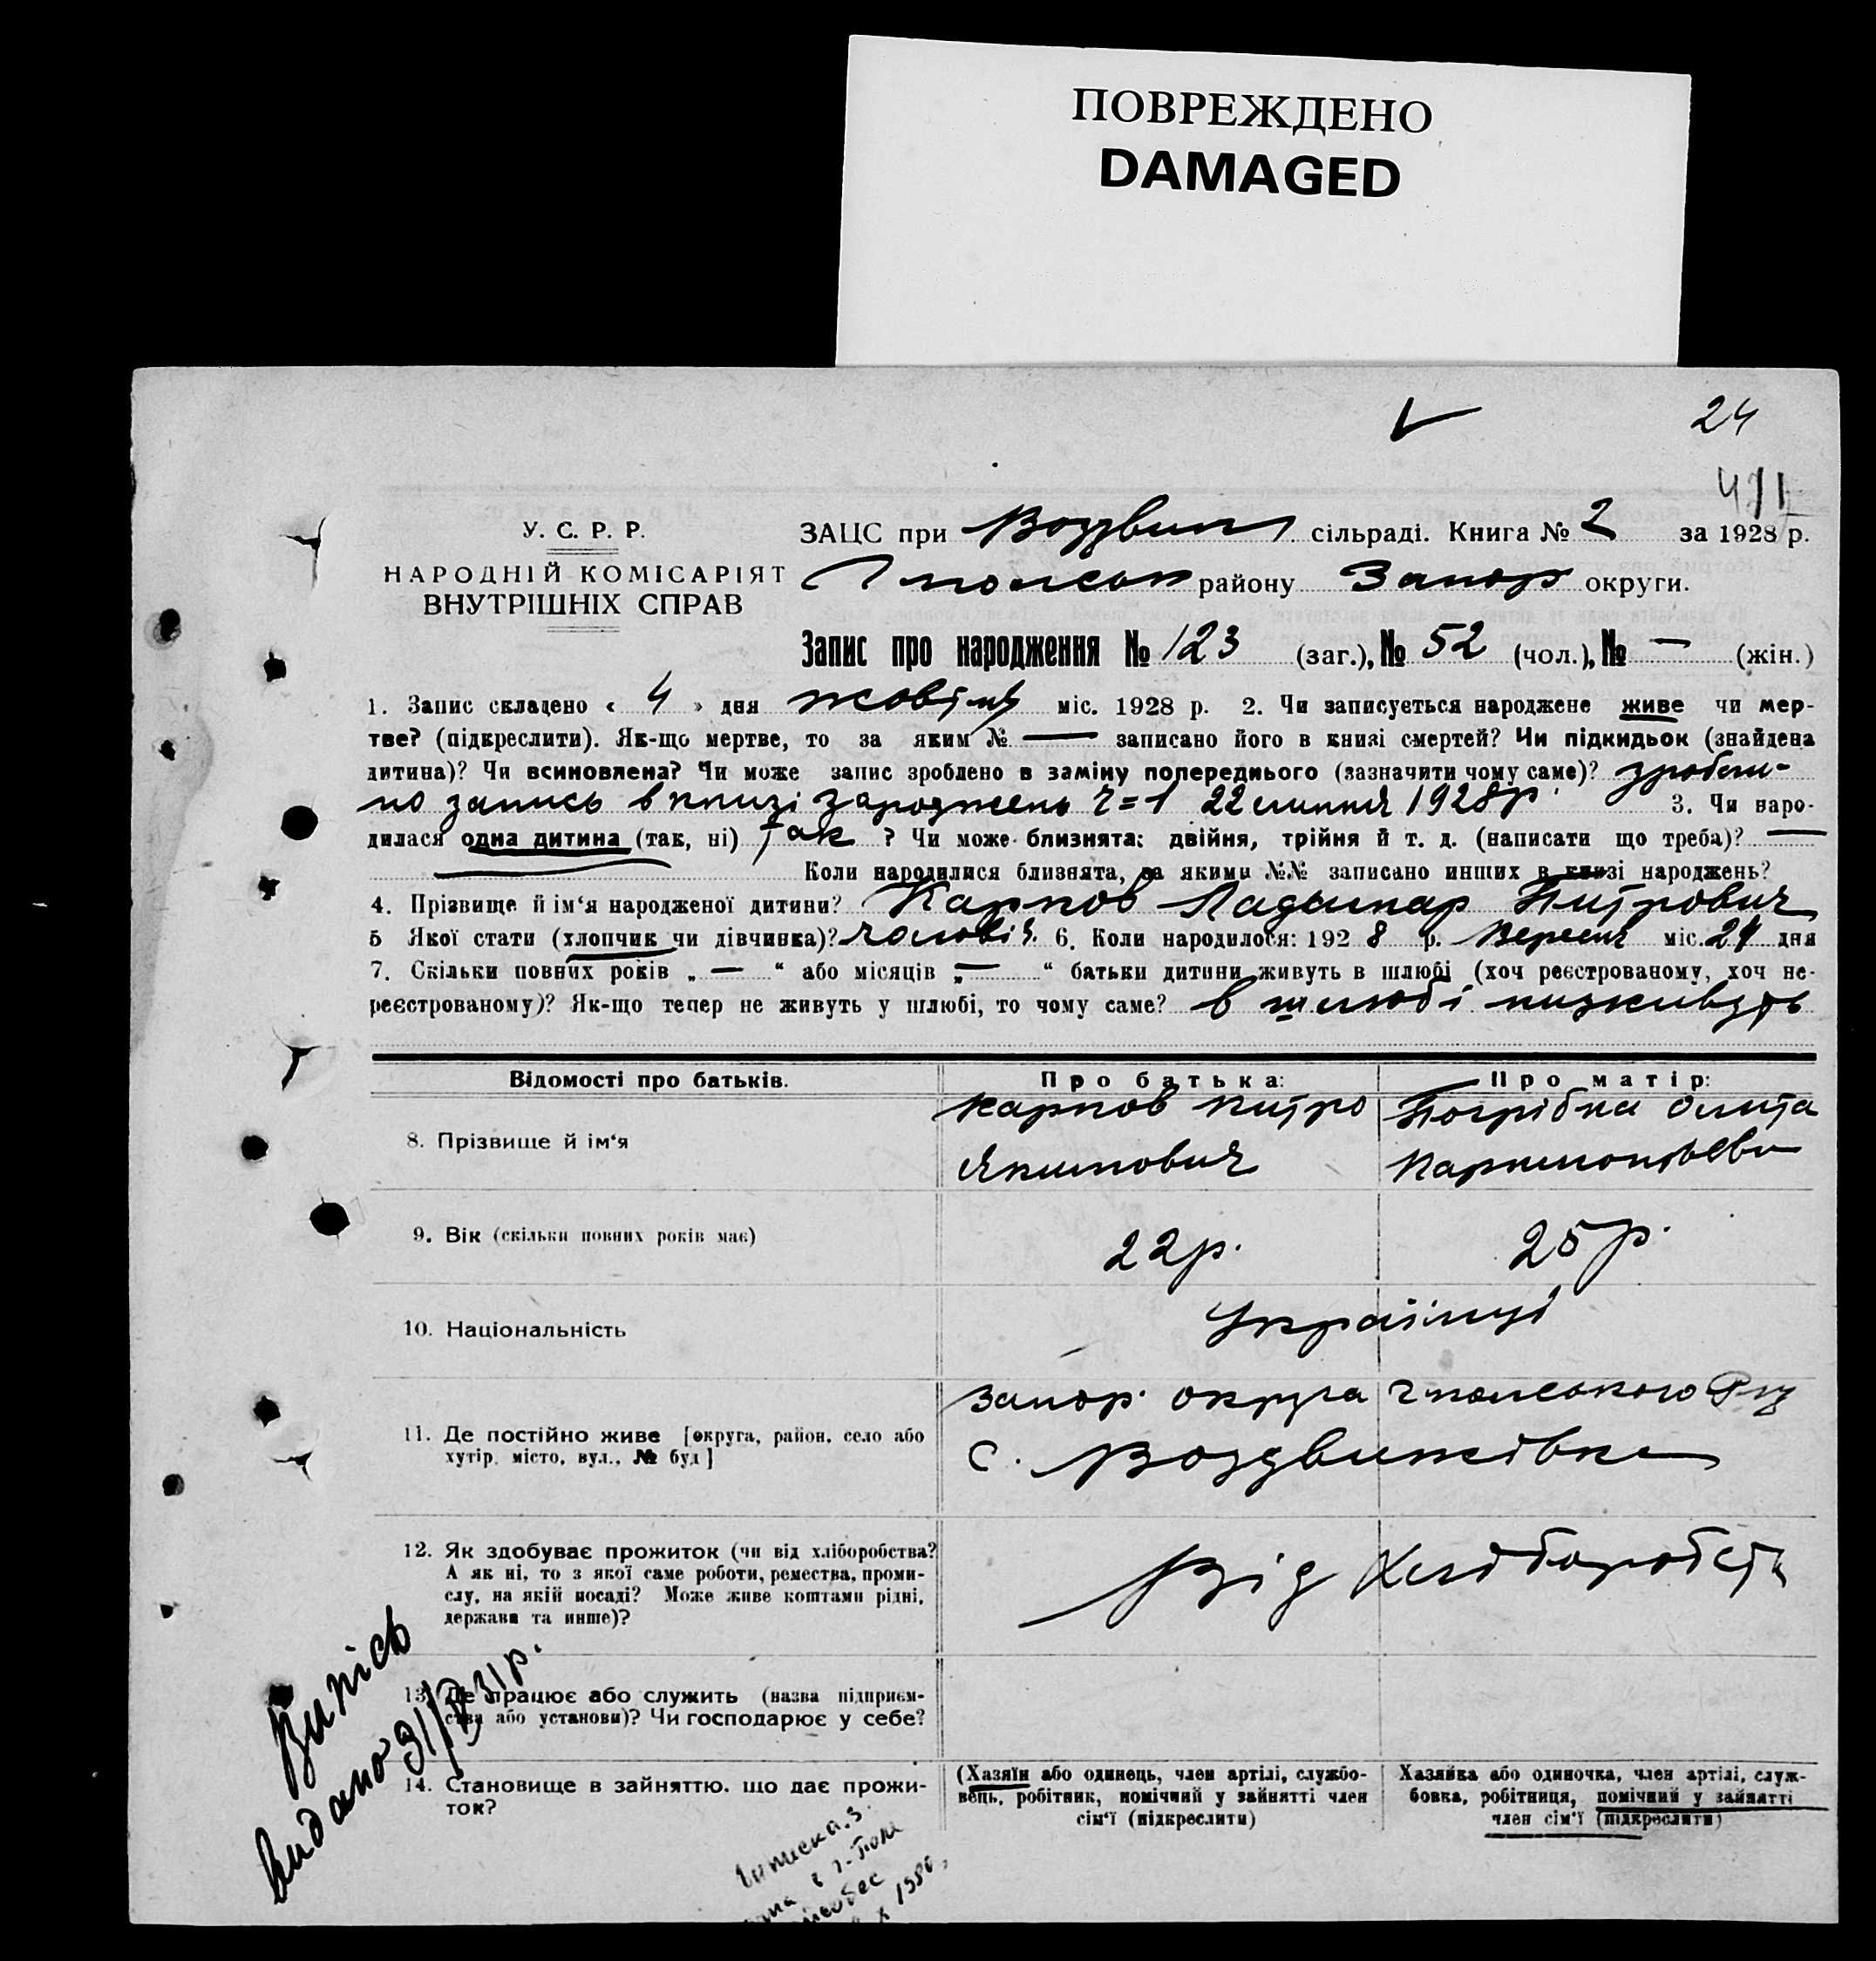 ПОВРЕЖДЕНО
DAMAGED
24
471
У. С. Р. Р.
НАРОДНІЙ КОМІСАРІЯТ
ВНУТРІШНІХ СПРАВ
ЗАЦС при Воздвиж сільраді. Книга № 2 за 1928 р.
Гпольськ району Запор округи.
Запис про народження № 123 (заг.), № 52 (чол.), № — (жін.)
1. Запис складено « 4 » дня жовтня міс. 1928 р. 2. Чи записується народжене живе чи мер-
тве? (підкреслити). Як-що мертве, то за яким № — записано його в книзі смертей? Чи підкидьок (знайдена
дитина)? Чи всиновлена? Чи може запис зроблено в заміну попереднього (зазначити чому саме)? зроблен-
но запись в книзі зароджень ч=1 22 липня 1928р. 3. Чи наро-
дилася одна дитина (так, ні) так ? Чи може близнята: двійня, трійня й т. д. (написати що треба)? —
— Коли народилися близнята, за якими №№ записано инших в книзі народжень?
4. Прізвище й ім‘я народженої дитини? Карпов Петрович
5 Якої стати (хлопчик чи дівчинка)? чоловіч. 6. Коли народилося: 1928 р. Вересня міс. 24 дня
7. Скільки повних років „ — “ або місяців „ — “ батьки дитини живуть в шлюбі (хоч реєстрованому, хоч не-
реєстрованому)? Як-що тепер не живуть у шлюбі, то чому саме? в шлюбі низживуть
Відомості про батьків.
Про батька:
Про матір:
8. Прізвище й ім‘я
Карпов Питро
Якимович
Погрібна
9. Вік (скільки повних років має)
22р.
25р.
10. Національність
Українці
11. Де постійно живе [округа, район, село або
хутір, місто, вул., № буд]
Запор. округа Гпольського
с. Воздвижівка
12. Як здобуває прожиток (чи від хліборобства?
А як ні, то з якої саме роботи, ремества, проми-
слу, на якій посаді? Може живе коштами рідні,
держави та инше)?
Від Хліборобств
13. Де працює або служить (назва підприєм-
ства або установи)? Чи господарює у себе?
14. Становище в зайняттю, що дає прожи-
ток?
(Хазяїн або одинець, член артілі, службо-
вець, робітник, помічний у зайнятті член
сім‘ї (підкреслити)
Хазяйка або одиночка, член артілі, служ-
бовка, робітниця, помічний у зайнятті
член сім‘ї (підкреслити)
Випісь
видано 31р.